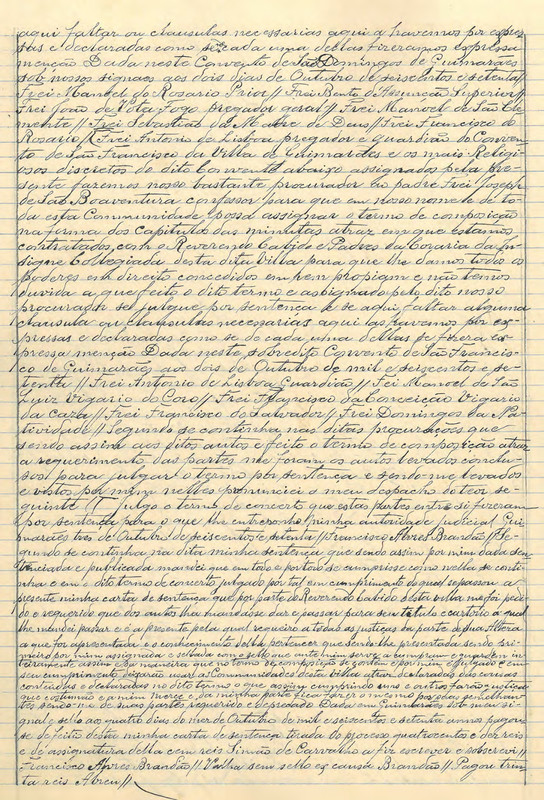 aqui faltar ou clausulas necessarias aqui as havemos por expres-
sas e declaradas como se cada uma dellas fizeramos expressa
menção Dada neste Convento de São Domingos de Guimarães
sob nossos signaes aos dois dias de Outubro de seiscentos e setenta//
Frei Manoel do Rosario Prior// Frei Bento da Assumção Superior//
Frei João de pregador geral// Frei Manoel de São Cle-
mente// Frei Sebastião da Madre de Deus// Frei Francisco do
Rosario// Frei Antonio de Lisboa pregador e guardião do Conven-
to de São Francisco da Villa de Guimarães e os mais Religi-
osos discretos do dito Convento abaixo assignados pela pre-
sente fazemos nosso bastante procurador ao padre Frei Joseph
de São Boaventura confessor para que em nosso nome e de to-
da esta Communidade possa assignar o termo de composição
na forma dos capitulos das minutas atraz em que estamos
contratados, com o Reverendo Cabido e Padres da Coraria da In-
signe Collegiada desta dita Villa para que lhe damos todos os
poderes em direito concedidos e não temos
duvida a que feito o dito termo e assignado pelo dito nosso
procurador se julgue por sentença e se aqui faltar alguma
clausula ou clausulas necessarias aqui as havemos por ex-
pressas e declaradas como se de cada uma dellas se fizera ex-
pressa menção Dada neste sobredito Convento de São Francis-
co de Guimarães aos dois de Outubro de mil e seiscentos e se-
tenta// Frei Antonio de Lisboa Guardião// Frei Manoel de São
Luiz Vigario do Coro// Frei Francisco da Conceição Vigario
da Caza// Frei Francisco do Salvador// Frei Domingos da Na-
tividade// Segundo se continha nas ditas procurações que
sendo assim aos ditos autos e feito o termo de composição atraz
a requerimento das partes me foram os autos levados conclu-
sos para julgar o termo por sentença e sendo-me levados
e vistos por mim nelles pronunciei o meu despacho do teor se-
guinte// Julgo o termo de concerto que estas partes entre si fizeram
por sentença para o que lhe entreponho minha autoridade judicial Gui-
marães tres de Outubro de seiscentos e setenta// Francisco Alvres Brandão// Se-
gundo se continha na dita minha sentença que sendo assim por mim dada sen-
tenciada e publicada mandei que em todo e por todo se cumprisse como nella se conti-
nha e em o dito termo de concerto julgado por tal em cumprimento do qual se passou a
presente minha carta de sentença que por parte do Reverendo Cabido desta villa me foi pedi-
do e requerido que dos autos lha mandasse dar e passar para seu titulo e cartorio a qual
lhe mandei passar e é a presente pela qual requeiro a todas as justiças da parte de Sua Alteza
a que for apresentada e o conhecimento della pertencer que sendo-lhe presentada sendo pri-
meiro por mim assignada e sellada com o sello que ante mim serve, a cumpram e guardem in-
teiramente assim e da maneira que no termo de composição se contem e por mim é julgado e em
seu cumprimento deixarão usar as Communidades desta villa atraz declaradas das cousas
contheudas e declaradas no dito termo o que assim cumprirão uns e outros farão justiça
que e a mim Mercê e da minha parte fica fazer o mesmo por suas
sendo-me de suas partes requerido e deprecado Dada em Guimarães sob meu si-
gnal e sello aos quatro dias do mez de Outubro de mil e seiscentos e setenta annos pagou-
se de feitio desta minha carta de sentença tirada do processo quatrocentos e dez reis
e de assignatura della cem reis Simão de Carvalho a fiz escrever e sobescrevi//
Francisco Alvres Brandão// Valha sem sello ex causa Brandão// Pagou trin-
ta reis Abreu//